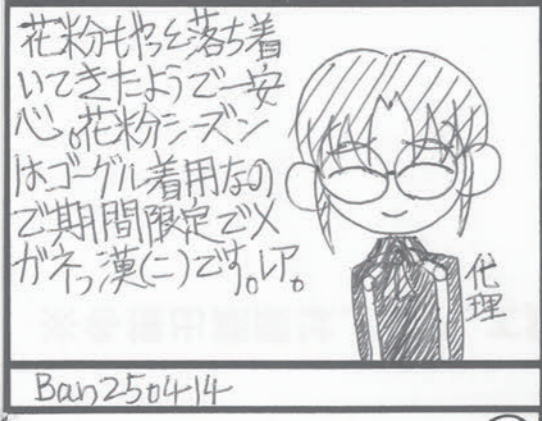 花粉もやっと落ち着
いてきたようで一安
心。花粉シーズン
はゴーグル着用なの
で期間限定でメ
ガネっ漢(ニ)です。レア。
代理
Ban250414